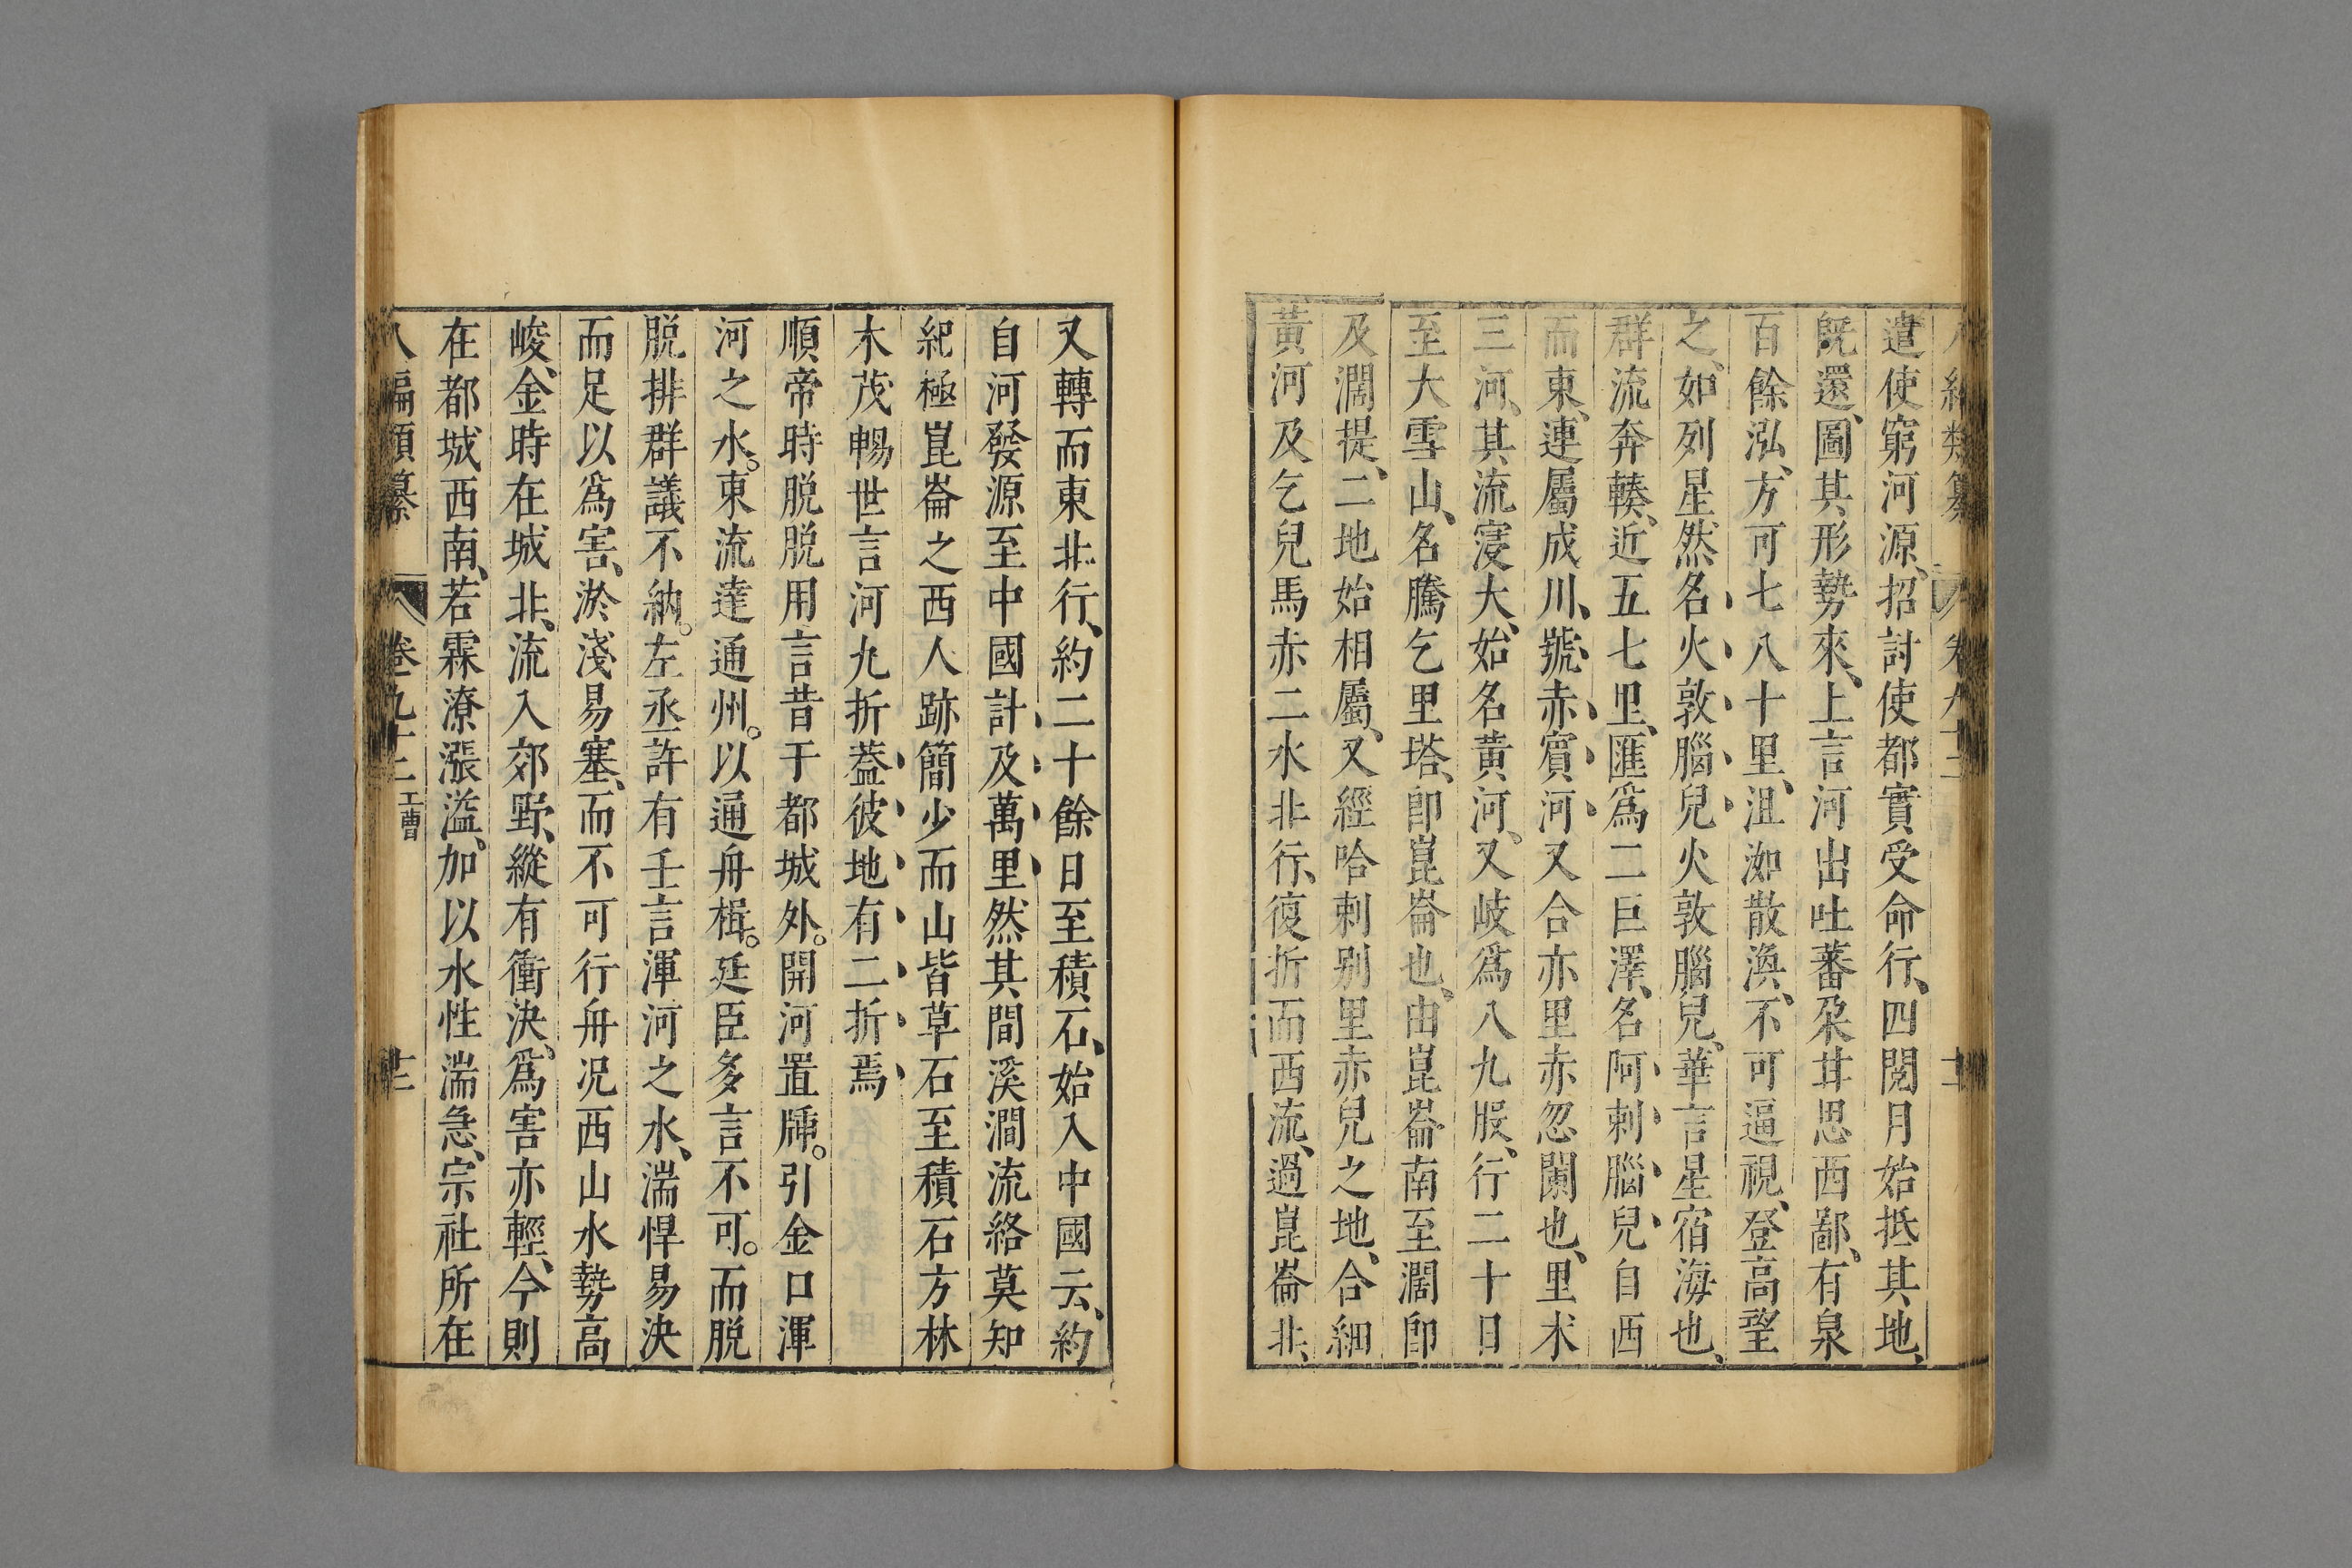 遣使窮河源、招討使都實受命行、四閱月始抵其地、
旣還、圖其形勢來、上言河出吐蕃朶甘思西鄙、有泉
百餘泓、方可七八十里、沮洳散渙、不可逼視、登高望
之、如列星然名火敦腦兒火敦腦兒、華言星宿海也、
群流奔輳、近五七里、匯爲二巨澤、名阿剌腦兒自西
而東、連屬成川、號赤賓河又合亦里赤忽闌也、里术
三河、其流寖大、始名黄河、又岐爲八九股、行二十日
至大雪山、名騰乞里塔、卽崑崙也、由崑崙南至濶卽
及濶提、二地始相屬、又經哈剌别里赤兒之地、合細
黃河及乞兒馬赤二水北行、復折而西流、過崑崙北、
又轉而東北行、約二十餘日至積石、始入中國云、約
自河發源至中國計及萬里然其間溪澗流絡莫知
紀極崑崙之西人跡簡少而山皆草石至積石方林
木茂暢世言河九折葢彼地有二折焉
順帝時脱脱用言昔于都城外。開河置牐。引金口渾
河之水。東流達通州。以通舟楫。廷臣多言不可。而脱
脱排群議不納。左丞許有壬言渾河之水、湍悍易決
而足以爲害、淤淺易塞、而不可行舟况西山水勢高
峻、金時在城北、流入郊野、縱有衝決、爲害亦輕、今則
在都城西南、若霖潦漲溢、加以水性湍急、宗社所在
八編類纂 卷九十二 工曹